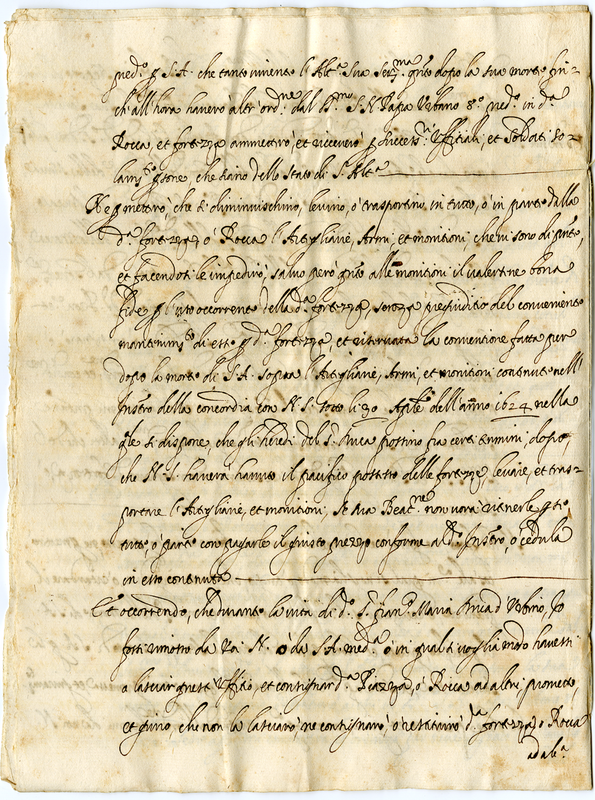 med.º p S.A. che tanto vivente l'Alt.ª Sua Ser.ma q.nto dopo la sua morte fin-
ch'all'hora haverò altr'ord.ne dal S.mo S. N. Papa Urbano 8.º in d.ª
Rocca, et fortezza ammetterò, et riceverò p success.ri Uffitiali, et Soldati so-
lam.te p sone, che siano dello Stato di S. Alt.ª
Ne p metterò, che si diminuischino, levino, ò trasportino in tutto, ò in parte dalla
d.ª fortezza, ò Rocca l'Artiglierie, Armi, et monitioni che vi sono di p nte,
et facendosi le impedirò, salvo però q.nto alle monitioni il valersene bona
fide p l'uso occorrente della d.ª fortezza, senza pregiuditio del conveniente
mantenim.to di esse p d.ª fortezza, et riservata la conventione fatta per
dopo la morte di S.A. sopra l'Artiglierie, Armi, et monitioni contenute nell'
Instro della concordia con N. S. sotto li 30 Aprile dell'anno 1624 nella
q.le si dispone, che gli heredi del S. Duca prossimo fra certi termini dopo,
che N. S. haverà havuto il pacifico possesso delle fortezze, levare, et tras-
portare l'Artiglierie, et monitioni, se Sua Beat.ne non vorà ritenerle p se
tutte, ò parte con pagarle il giusto prezzo conforme al d.º Instro, ò cedula
in esso contenuta
Et occorrendo, che durante la vita di d.º S. Fran.co Maria Duca d'Urbino, Io
fossi rimosso da N. S. ò da S.A. med.ª ò in qual si voglia modo havessi
a lasciar questo Uffitio, et consignar d.ª Piazza, ò Rocca ad altri prometto,
et giuro, che non la lasciarò, ne consignarò, ò restituirò d.ª fortezza, ò Rocca
ad alc.ª